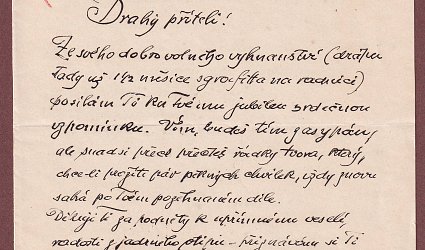 Drahý příteli!
Ze svého dobrovolného vyhnanství (drápu
tady už 1½ měsíce sgrafitta na radnici)
posílám Ti ku Tvému jubileu srdečnou
vzpomínku. Vím, budeš tím zasypán,
ale snad si přece přečteš řádky tvora, který,
chce-li prožíti pár pěkných chvilek, vždy znovu
sahá po Tvém požehnaném díle.
Děkuji ti za podněty k upřímnému veselí,
radosti z jadrného vtipu – přiznávám se Ti